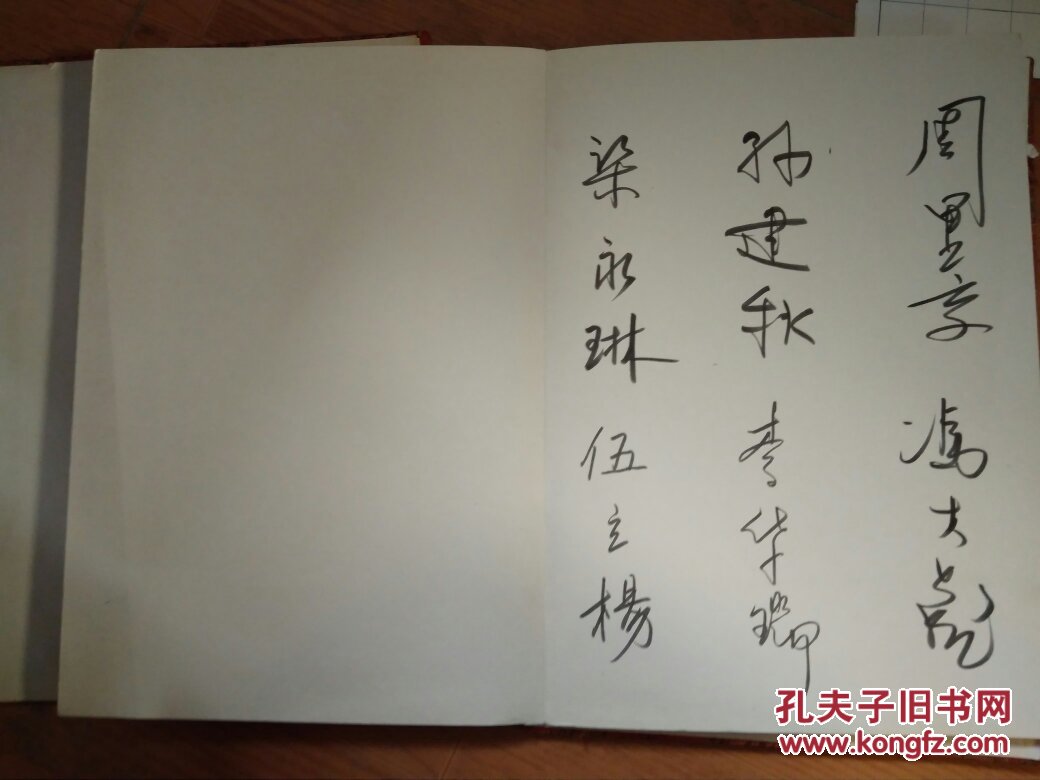 周里京 冯大彪
孙建秋 李华
梁永琳 伍立杨
孔夫子旧书网
www.kongfz.com